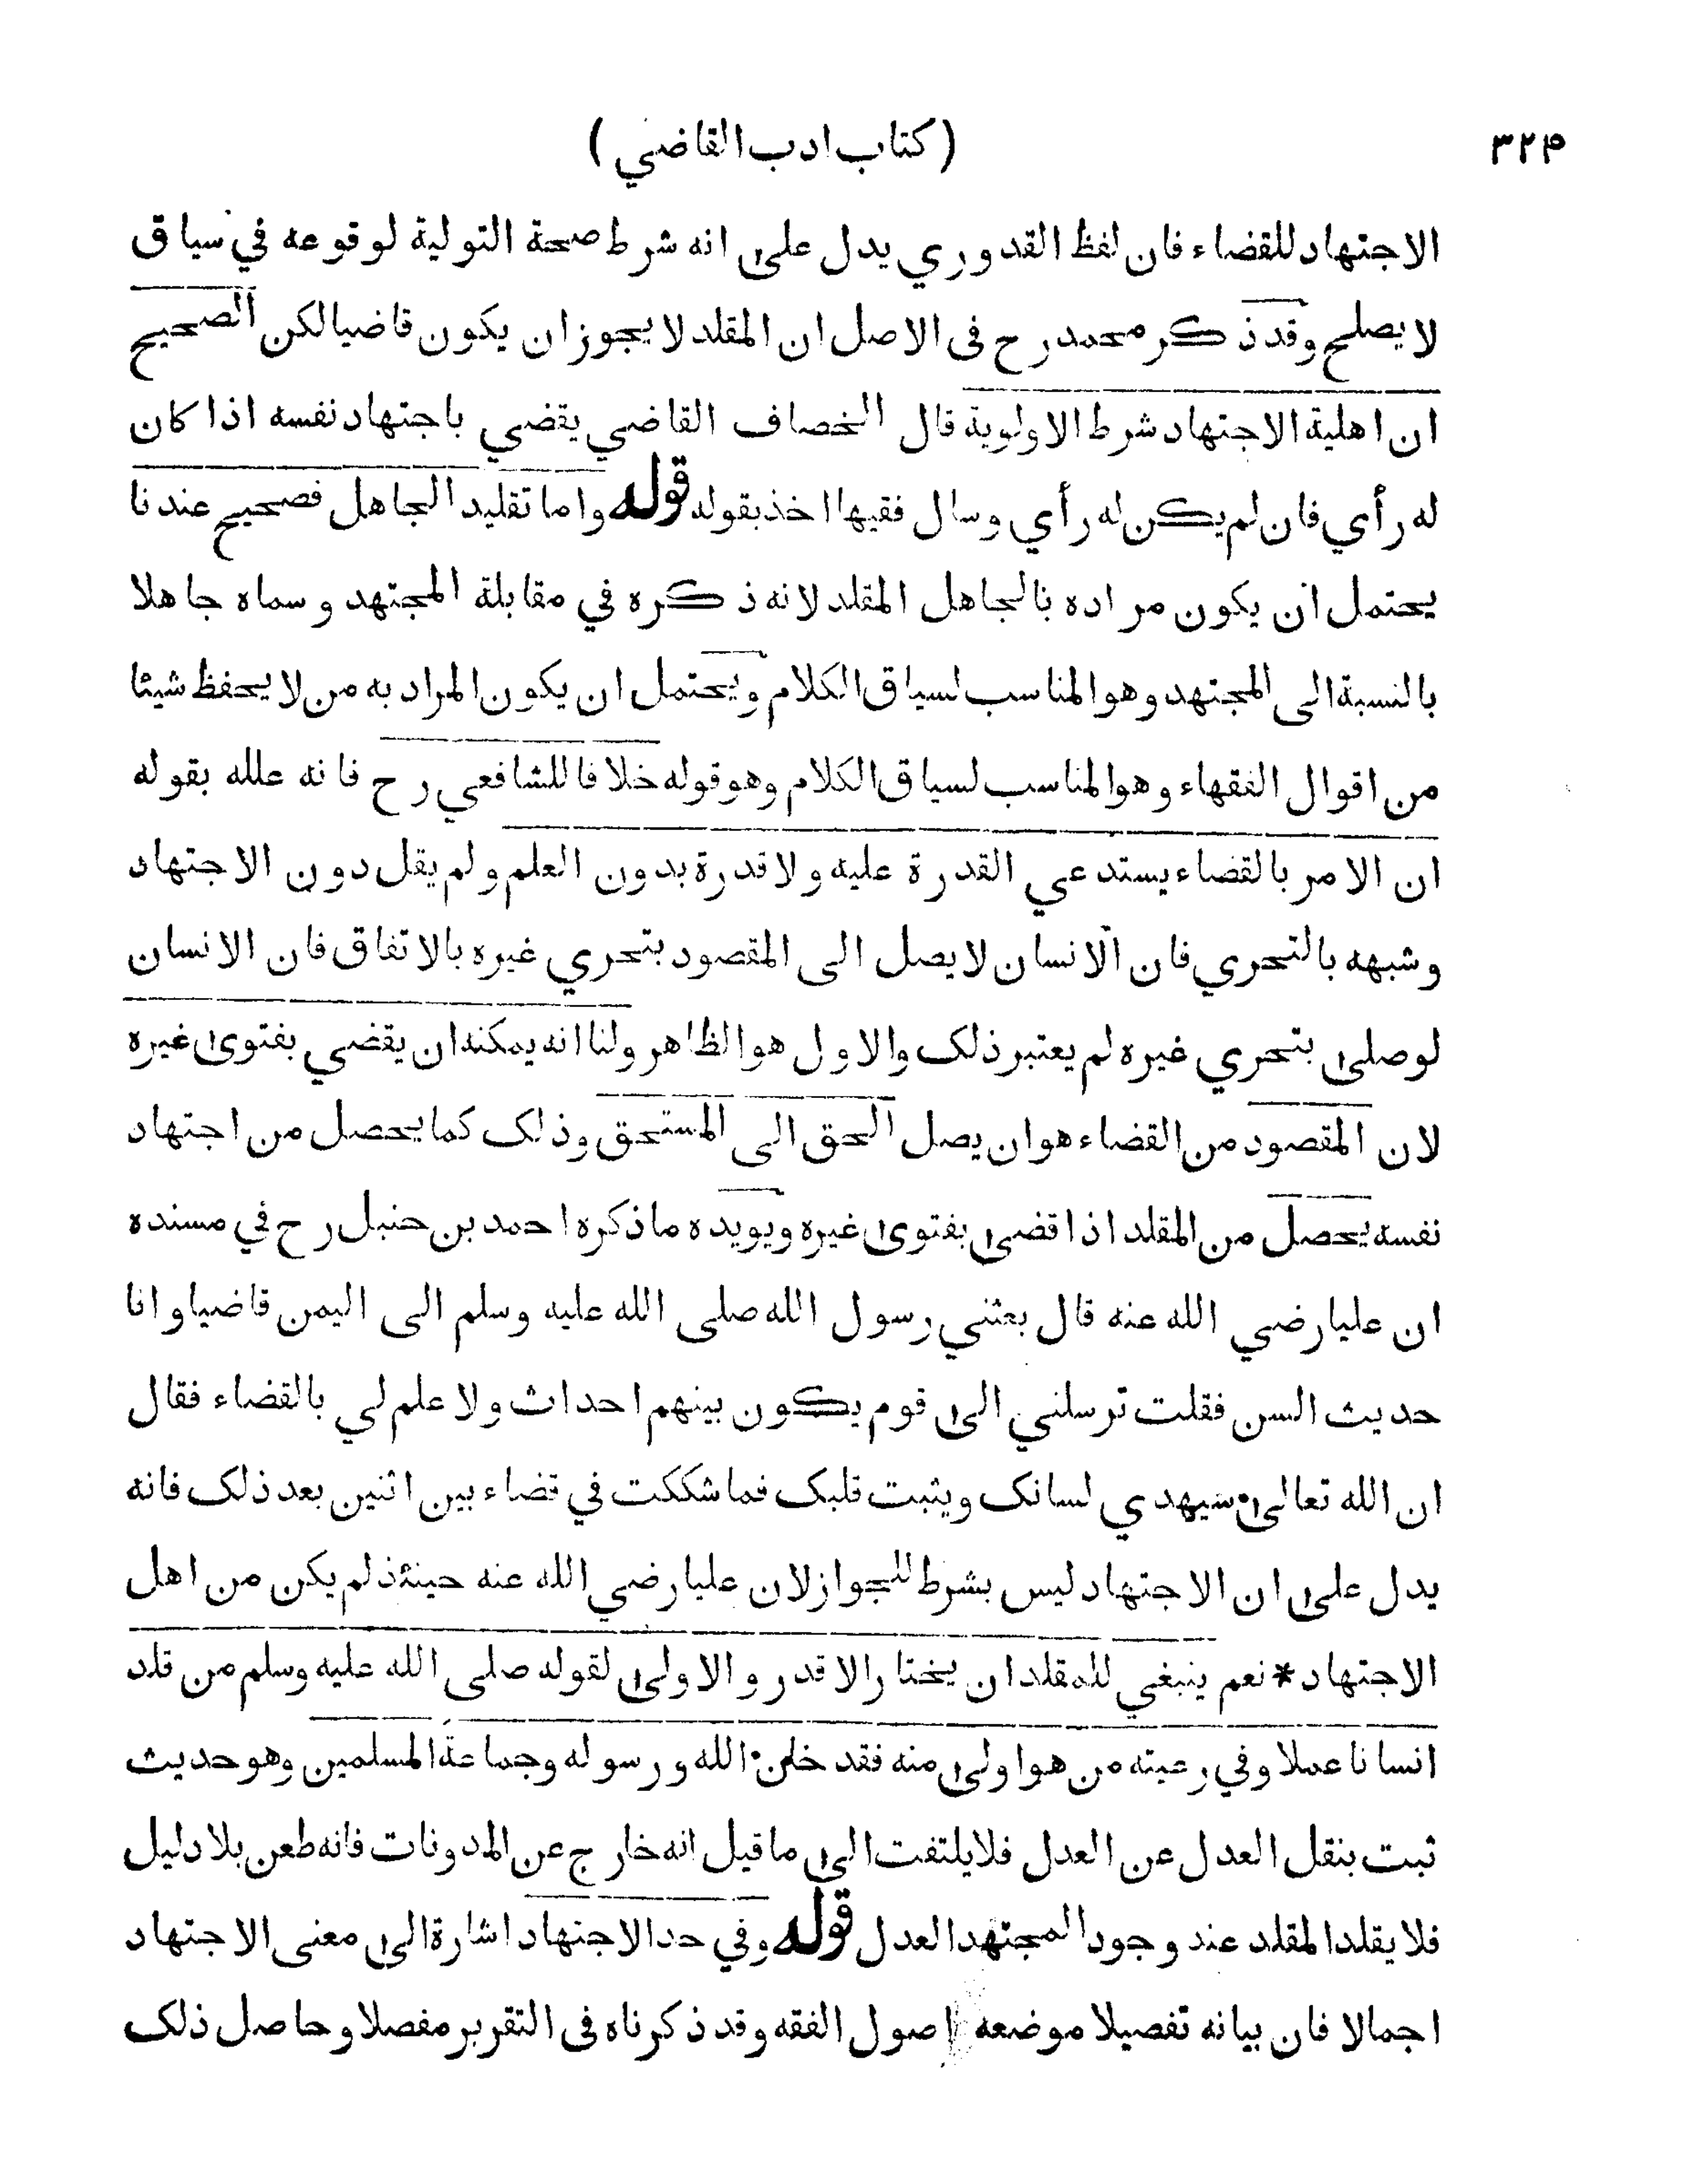 (كتاب ادب القاضي) ٣٢۴
الاجتهاد للقضاء فان لفظ القدوري يدل على انه شرط صحة التولية لوقوعه في سياق
لا يصلح وقد ذكر محمد رح فى الاصل ان المقلد لا يجوز ان يكون قاضيا لكن الصحيح
ان اهلية الاجتهاد شرط الاولوية قال الخصاف القاضي يقضي باجتهاد نفسه اذا كان
له رأي فان لم يكن له رأي وسال فقيها اخذ بقوله قوله واما تقليد الجاهل فصحيح عندنا
يحتمل ان يكون مراده بالجاهل المقلد لانه ذكره في مقابلة المجتهد وسماه جاهلا
بالنسبة الى المجتهد وهو المناسب لسياق الكلام ويحتمل ان يكون المراد به من لا يحفظ شيئا
من اقوال الفقهاء وهو المناسب لسياق الكلام وهو قوله خلافا للشافعي رح فانه علله بقوله
ان الامر بالقضاء يستدعي القدرة عليه ولا قدرة بدون العلم ولم يقل دون الاجتهاد
وشبهه بالتحري فان الانسان لا يصل الى المقصود بتحري غيره بالاتفاق فان الانسان
لو صلى بتحري غيره لم يعتبر ذلک والاول هو الظاهر ولنا انه يمكنه ان يقضي بفتوى غيره
لان المقصود من القضاء هو ان يصل الحق الى المستحق وذلک كما يحصل من اجتهاد
نفسه يحصل من المقلد اذا قضى بفتوى غيره ويويده ما ذكره احمد بن حنبل رح في مسنده
ان عليا رضي الله عنه قال بعثني رسول الله صلى الله عليه وسلم الى اليمن قاضيا وانا
حديث السن فقلت ترسلني الى قوم يكون بينهم احداث ولا علم لي بالقضاء فقال
ان الله تعالى سيهدي لسانک ويثبت قلبک فما شككت في قضاء بين اثنين بعد ذلک فانه
يدل على ان الاجتهاد ليس بشرط للجواز لان عليا رضي الله عنه حينئذ لم يكن من اهل
الاجتهاد * نعم ينبغي للمقلد ان يختار الاقدر والاولى لقوله صلى الله عليه وسلم من قلد
انسانا عملا وفي رعيته من هو اولى منه فقد خان الله ورسوله وجماعة المسلمين وهو حديث
ثبت بنقل العدل عن العدل فلا يلتفت الى ما قيل انه خارج عن المدونات فانه طعن بلا دليل
فلا يقلد المقلد عند وجود المجتهد العدل قوله وفي حد الاجتهاد اشارة الى معنى الاجتهاد
اجمالا فان بيانه تفصيلا موضعه اصول الفقه وقد ذكرناه فى التقرير مفصلا وحاصل ذلک